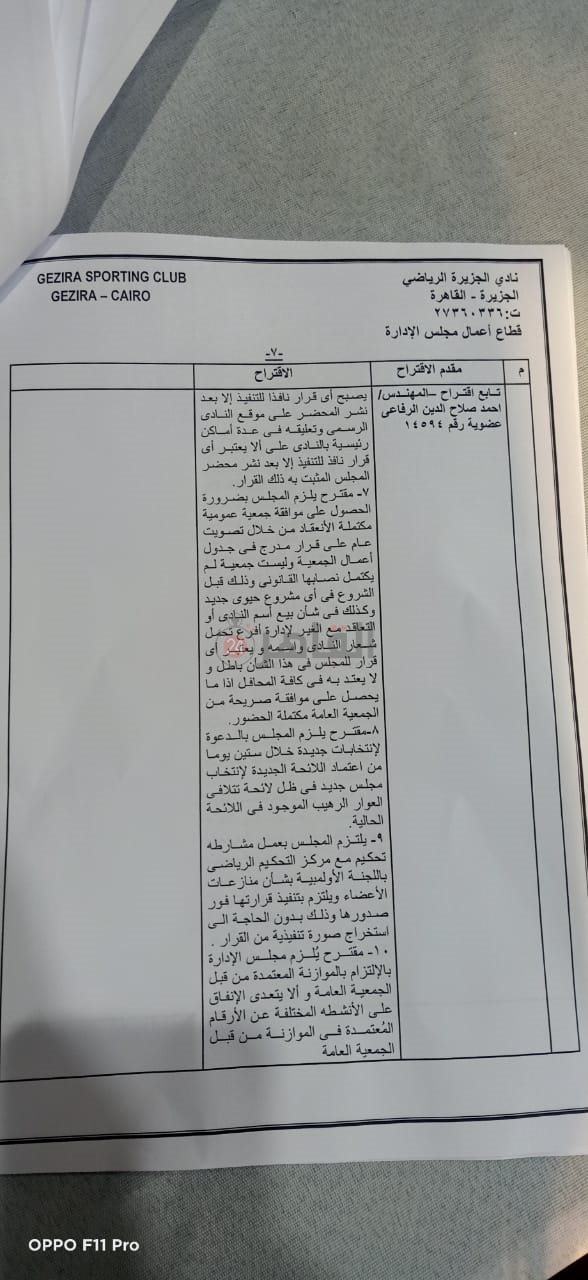 نادي الجزيرة الرياضي
الجزيرة - القاهرة
ت: ٢٧٣٦٠٣٣٦
قطاع أعمال مجلس الإدارة
GEZIRA SPORTING CLUB
GEZIRA – CAIRO
-٧-
م
مقدم الاقتراح
الاقتراح
تابع اقتراح –المهندس/
احمد صلاح الدين الرفاعى
عضوية رقم ١٤٥٩٤
يصبح أى قرار نافذا للتنفيذ إلا بعد
نشر المحضر على موقع النادى
الرسمى وتعليقه فى عدة أماكن
رئيسية بالنادى على ألا يعتبر أى
قرار نافذ للتنفيذ إلا بعد نشر محضر
المجلس المثبت به ذلك القرار.
٧- مقترح يلزم المجلس بضرورة
الحصول على موافقة جمعية عمومية
مكتملة الأنعقاد من خلال تصويت
عام على قرار مدرج فى جدول
أعمال الجمعية وليست جمعية لم
يكتمل نصابها القانونى وذلك قبل
الشروع فى أى مشروع حيوى جديد
وكذلك فى شأن بيع أسم النادى أو
التعاقد مع الغير لإدارة أفرع تحمل
شعار النادى واسمه و يعتبر أى
قرار للمجلس فى هذا الشأن باطل و
لا يعتد به فى كافة المحافل اذا ما
يحصل على موافقة صريحة من
الجمعية العامة مكتملة الحضور.
٨-مقترح يلزم المجلس بالدعوة
لإنتخابات جديدة خلال ستين يوما
من اعتماد اللائحة الجديدة لإنتخاب
مجلس جديد فى ظل لائحة تتلافى
العوار الرهيب الموجود فى اللائحة
الحالية.
٩- يلتزم المجلس بعمل مشارطه
تحكيم مع مركز التحكيم الرياضى
باللجنة الأولمبية بشأن منازعات
الأعضاء ويلتزم بتنفيذ قرارتها فور
صدورها وذلك بدون الحاجة الى
استخراج صورة تنفيذية من القرار .
١٠- مقترح يُلزم مجلس الإدارة
بالإلتزام بالموازنة المعتمدة من قبل
الجمعية العامة و ألا يتعدى الإنفاق
على الأنشطه المختلفة عن الأرقام
المُعتمدة فى الموازنة من قبل
الجمعية العامة
القاهرة 24
OPPO F11 Pro